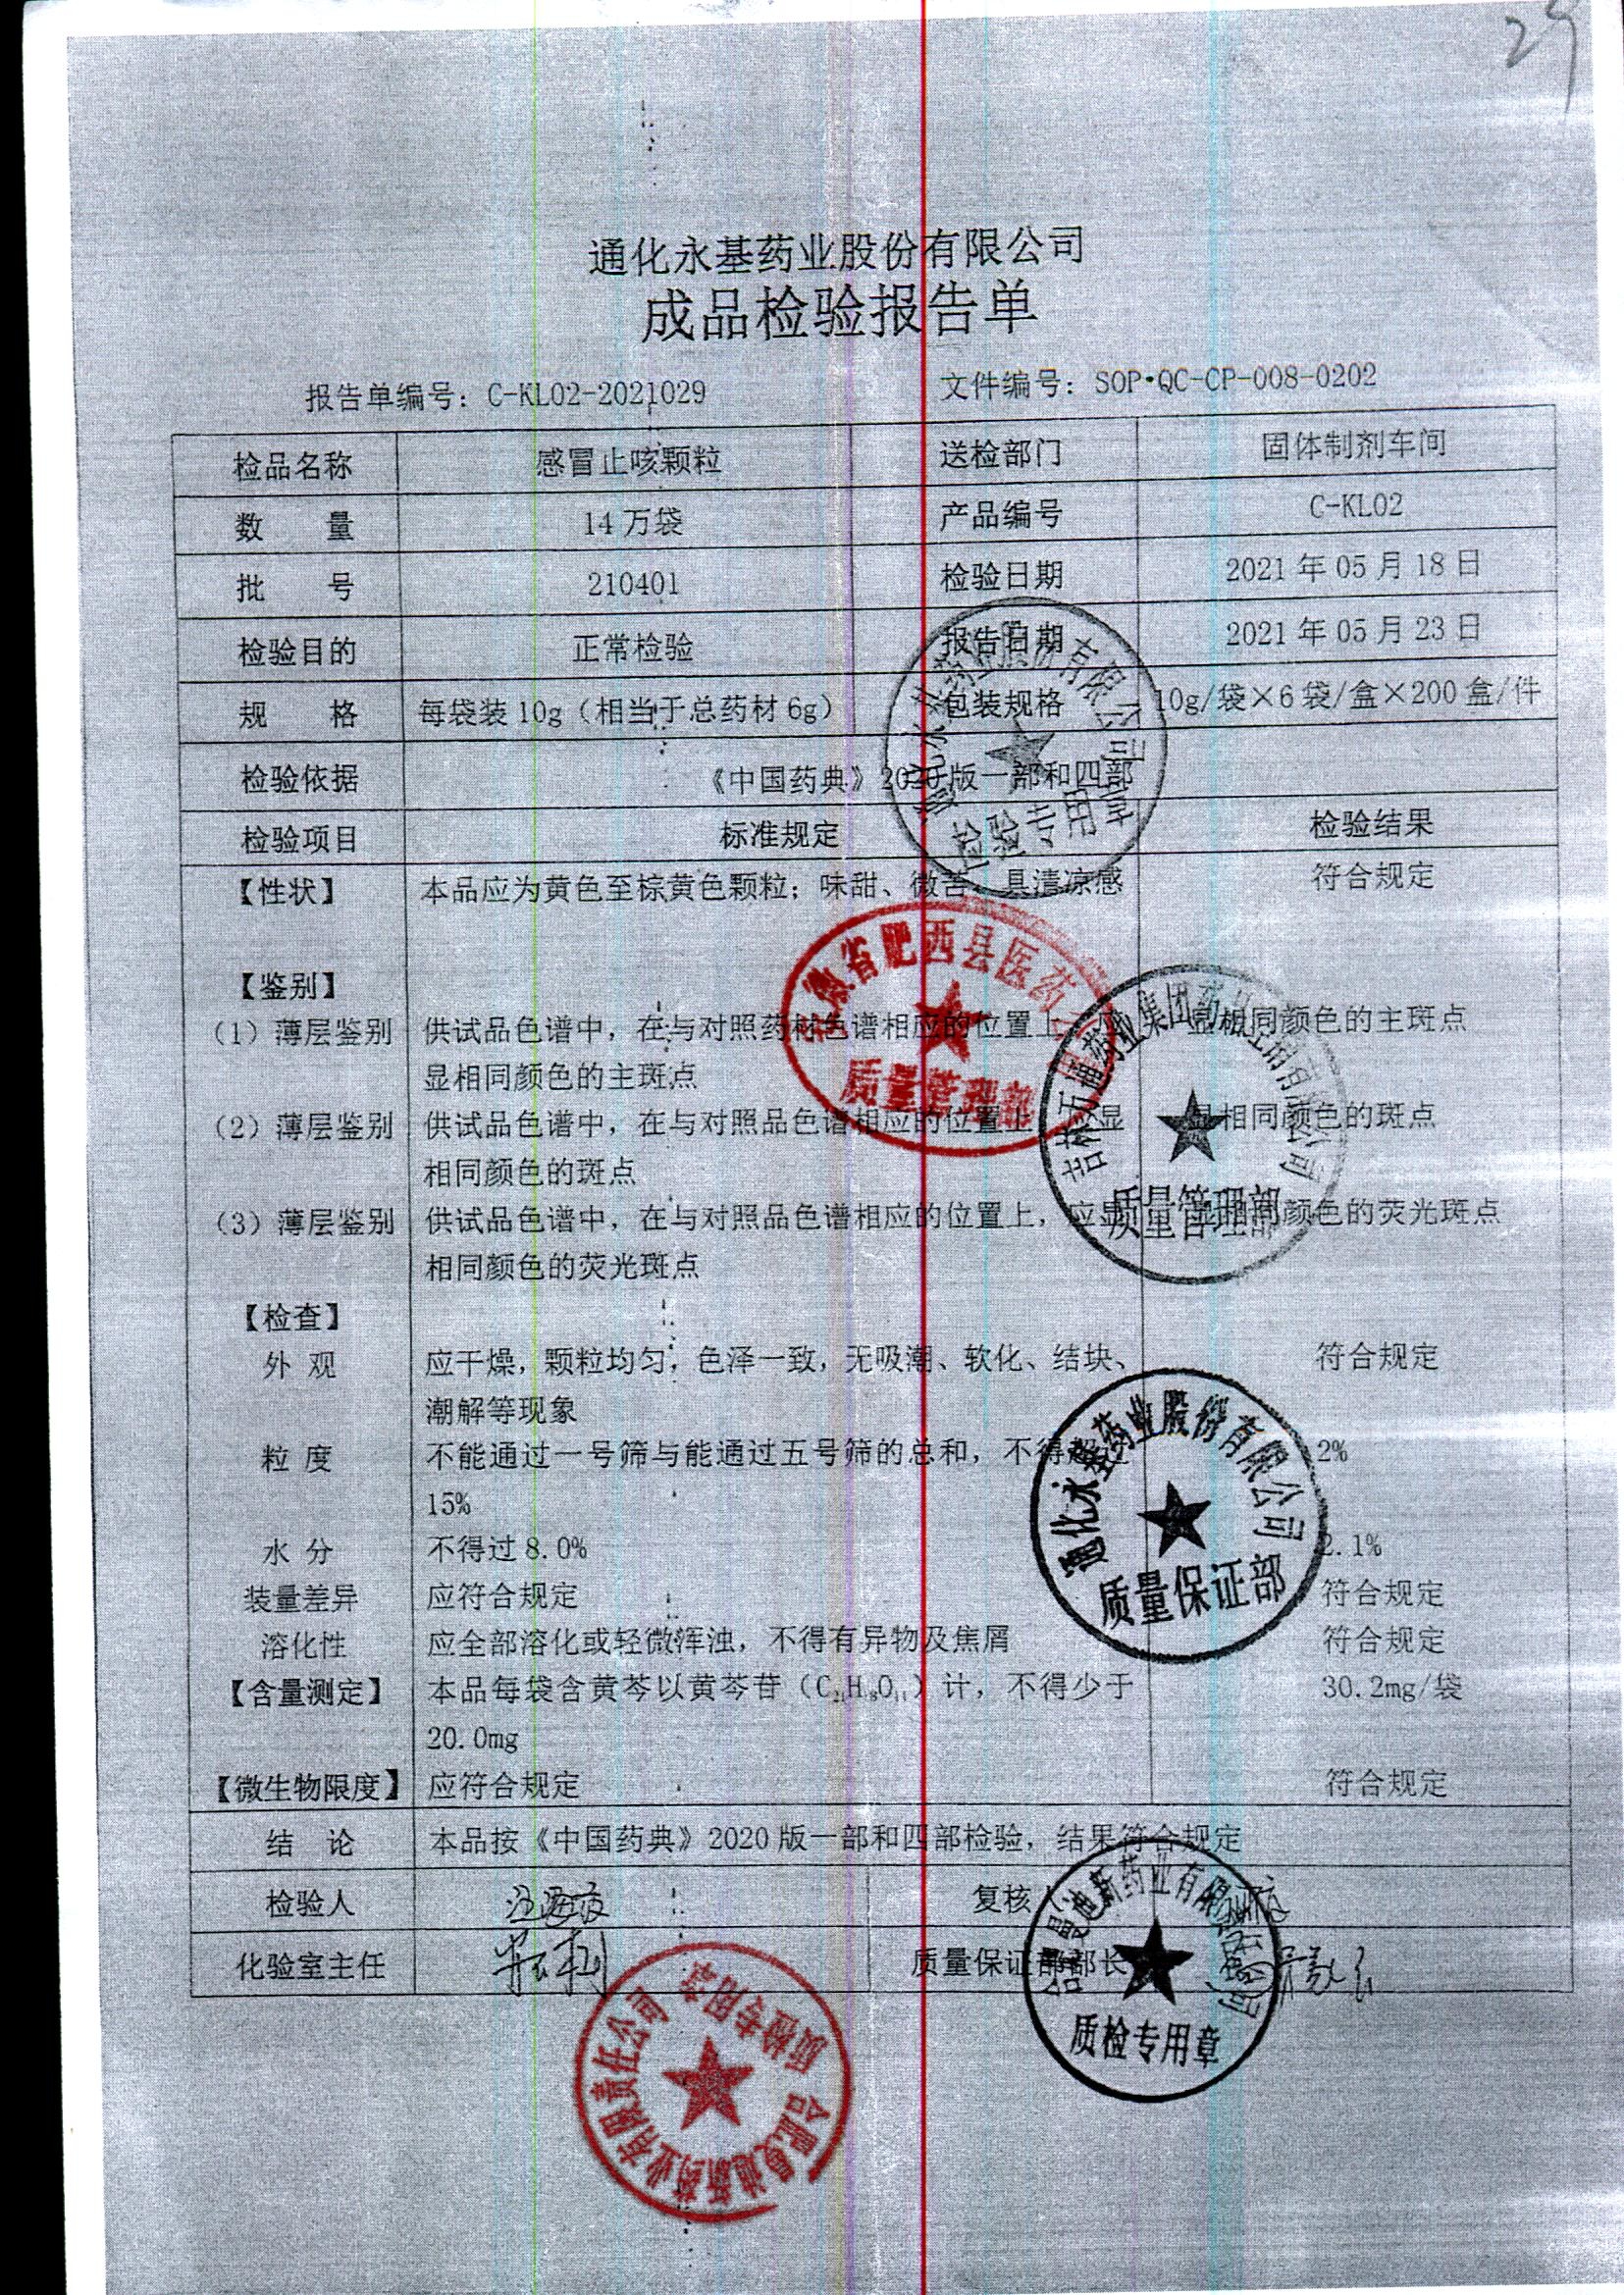 29
通化永基药业股份有限公司
成品检验报告单
报告单编号：C-KL02-2021029 文件编号：SOP·QC-CP-008-0202
检品名称 感冒止咳颗粒 送检部门 固体制剂车间
数 量 14万袋 产品编号 C-KL02
批 号 210401 检验日期 2021年05月18日
检验目的 正常检验 报告日期 2021年05月23日
规 格 每袋装10g（相当于总药材6g） 包装规格 10g/袋×6袋/盒×200盒/件
检验依据 《中国药典》2020版一部和四部
检验项目 标准规定 检验结果
【性状】 本品应为黄色至棕黄色颗粒；味甜、微苦 具清凉感 符合规定
【鉴别】
（1）薄层鉴别 供试品色谱中，在与对照药材色谱相应的位置上 显相同颜色的主斑点
显相同颜色的主斑点
（2）薄层鉴别 供试品色谱中，在与对照品色谱相应的位置上 显 显相同颜色的斑点
相同颜色的斑点
（3）薄层鉴别 供试品色谱中，在与对照品色谱相应的位置上，应显 显相同颜色的荧光斑点
相同颜色的荧光斑点
【检查】
外 观 应干燥，颗粒均匀，色泽一致，无吸潮、软化、结块、 符合规定
潮解等现象
粒 度 不能通过一号筛与能通过五号筛的总和，不得超过 2%
15%
水 分 不得过8.0% 2.1%
装量差异 应符合规定 符合规定
溶化性 应全部溶化或轻微浑浊，不得有异物及焦屑 符合规定
【含量测定】 本品每袋含黄芩以黄芩苷（C₂₁H₁₈O₁₁）计，不得少于 30.2mg/袋
20.0mg
【微生物限度】 应符合规定 符合规定
结 论 本品按《中国药典》2020版一部和四部检验，结果符合规定
检验人 复核
化验室主任 质量保证部部长
通化永基药业股份有限公司
检验专用章
安徽省肥西县医药公司
质量管理部
吉林万通药业集团药品经销有限公司
质量管理部
通化永基药业股份有限公司
质量保证部
合肥曼迪新药业有限责任公司
质检专用章
合肥曼迪新药业有限责任公司
质检专用章